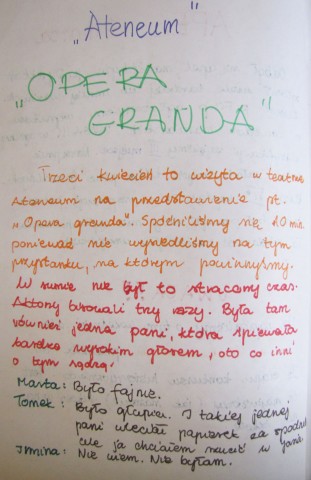 „Ateneum"
„OPERA
GRANDA"
Trzeci kwiecień to wizyta w teatrze
Ateneum na przedstawienie pt.
„Opera granda". Spóźniliśmy się 10 min
ponieważ nie wysiedliśmy na tym
przystanku, na którym powinnyśmy.
W sumie nie był to stracony czas.
Aktorzy bisowali trzy razy. Była tam
również jedna pani, która śpiewała
bardzo wysokim głosem, oto co inni
o tym sądzą:
Marta: Było fajnie.
Tomek: Było głupio. I takiej jednej
pani wleciał papierek za spodnie
ale ja chciałem rzucić w
Immina: Nie wiem. Nie byłam.